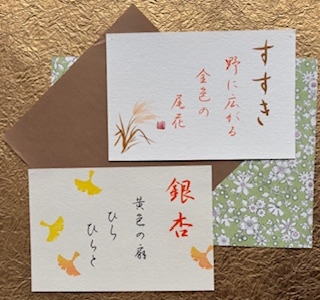 すすき
野に広がる
金色の
尾花
銀杏
黄色の扇
ひら
ひらと